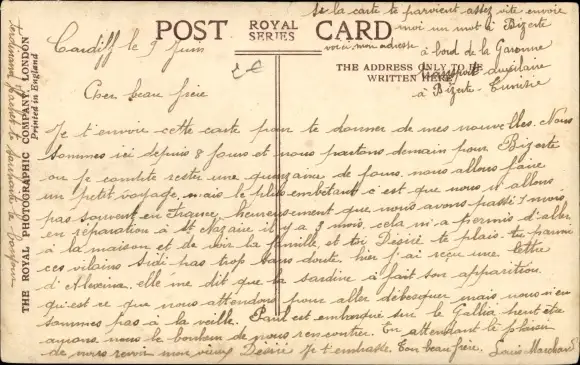 si la carte te parvient assez vite envoie
moi un mot à Bizerte
voici mon adresse
à bord de la Garonne
transport auxiliaire
à Bizerte - Tunisie
POST CARD
ROYAL
SERIES
THE ADDRESS ONLY TO BE
WRITTEN HERE
Cardiff le 9 Juin
2€
Cher beau frère
Je t'envoie cette carte pour te donner de mes nouvelles. Nous
sommes ici depuis 8 jours et nous partons demain pour Bizerte
ou je compte rester une quinzaine de jours. nous allons faire
un petit voyage. mais le plus embêtant c'est que nous n'allons
pas souvent en France, heureusement que nous avons passé 1 mois
en réparation à St Nazaire il y a 3 mois, cela m'a permis d'aller
à la maison et de voir la famille, et toi Désiré te plais-tu parmi
ces vilains Sidi pas trop sans doute. hier j'ai reçu une lettre
elle me dit que la sardine a fait son apparition.
qu'est ce que nous attendons pour aller débesquer mais nous n'en
sommes pas à la veille. Paul est embarqué sur le Gallia peut être
aurons nous le bonheur de nous rencontrer. En attendant le plaisir
de nous revoir mon vieux Désiré je t'embrasse. Ton beau frère, Louis Marchand
THE ROYAL PHOTOGRAPHIC COMPANY, LONDON
Printed in England